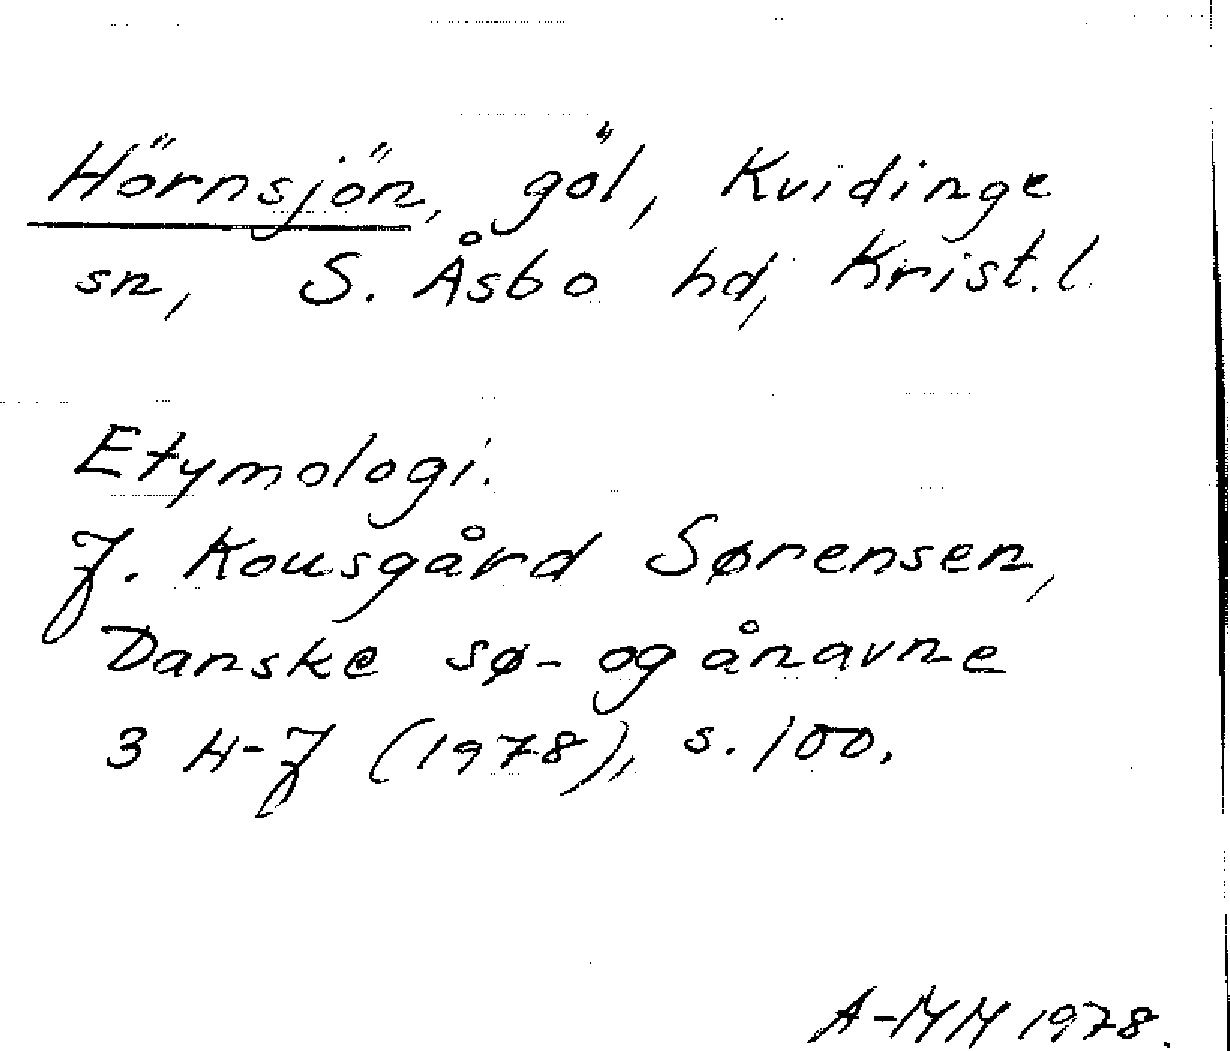 Hörnsjön, göl, Kvidinge
sn, S. Åsbo hd, Krist. l.
Etymologi.
J. Kousgård Sørensen,
Danske sø- og ånavne
3 H-J (1978), s. 100.
A-MM 1978.